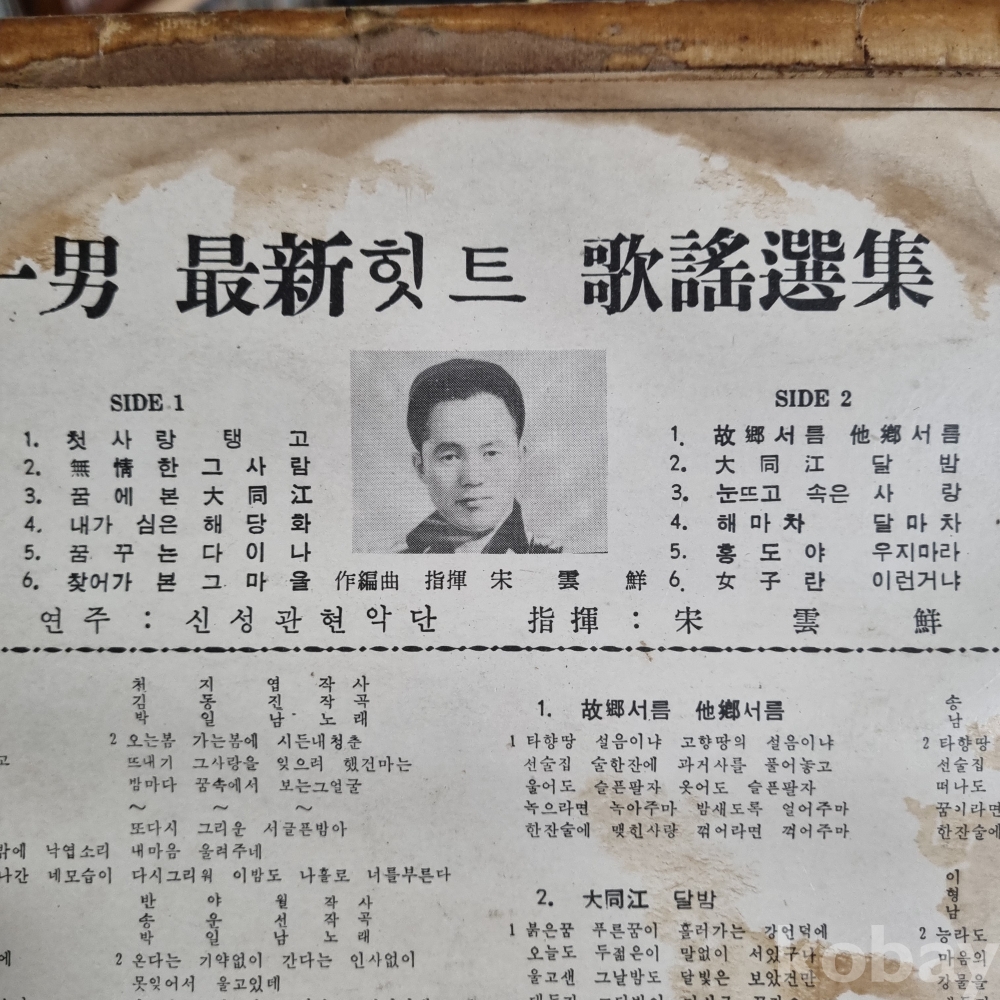 一男 最新힛트 歌謠選集
SIDE 1
1. 첫사랑 탱고
2. 無情한 그 사람
3. 꿈에 본 大同江
4. 내가 심은 해당화
5. 꿈꾸는 다이나
6. 찾어가 본 그 마을
作編曲 指揮 宋雲鮮
SIDE 2
1. 故鄕서름 他鄕서름
2. 大同江 달밤
3. 눈뜨고 속은 사랑
4. 해마차 달마차
5. 홍도야 우지마라
6. 女子란 이런거냐
연주 : 신성관현악단 指揮 : 宋雲鮮
천지엽 작사
김동진 작곡
박일남 노래
2 오는봄 가는봄에 시든내청춘
뜨내기 그사랑을 잊으려 했건마는
밤마다 꿈속에서 보는그얼굴
~ ~ ~
또다시 그리운 서글픈밤아
밖에 낙엽소리 내마음 울려주네
나간 네모습이 다시그리워 이밤도 나홀로 너를부른다
반야월 작사
송운선 작곡
박일남 노래
에 2 온다는 기약없이 간다는 인사없이
못잊어서 울고있데
1. 故鄕서름 他鄕서름
1 타향땅 설음이냐 고향땅의 설음이냐
선술집 술한잔에 과거사를 풀어놓고
울어도 슬픈팔자 웃어도 슬픈팔자
녹으라면 녹아주마 밤새도록 얼어주마
한잔술에 맺힌사랑 꺾어라면 꺾어주마
송
남
2 타향땅
선술집
떠나도
꿈이라면
한잔술에
2. 大同江 달밤
1 붉은꿈 푸른꿈이 흘러가는 강언덕에
오늘도 두젊은이 말없이 서있구나
울고샌 그날밤도 달빛은 보았건만
이
형
남
2 능라도
마음의
강물을